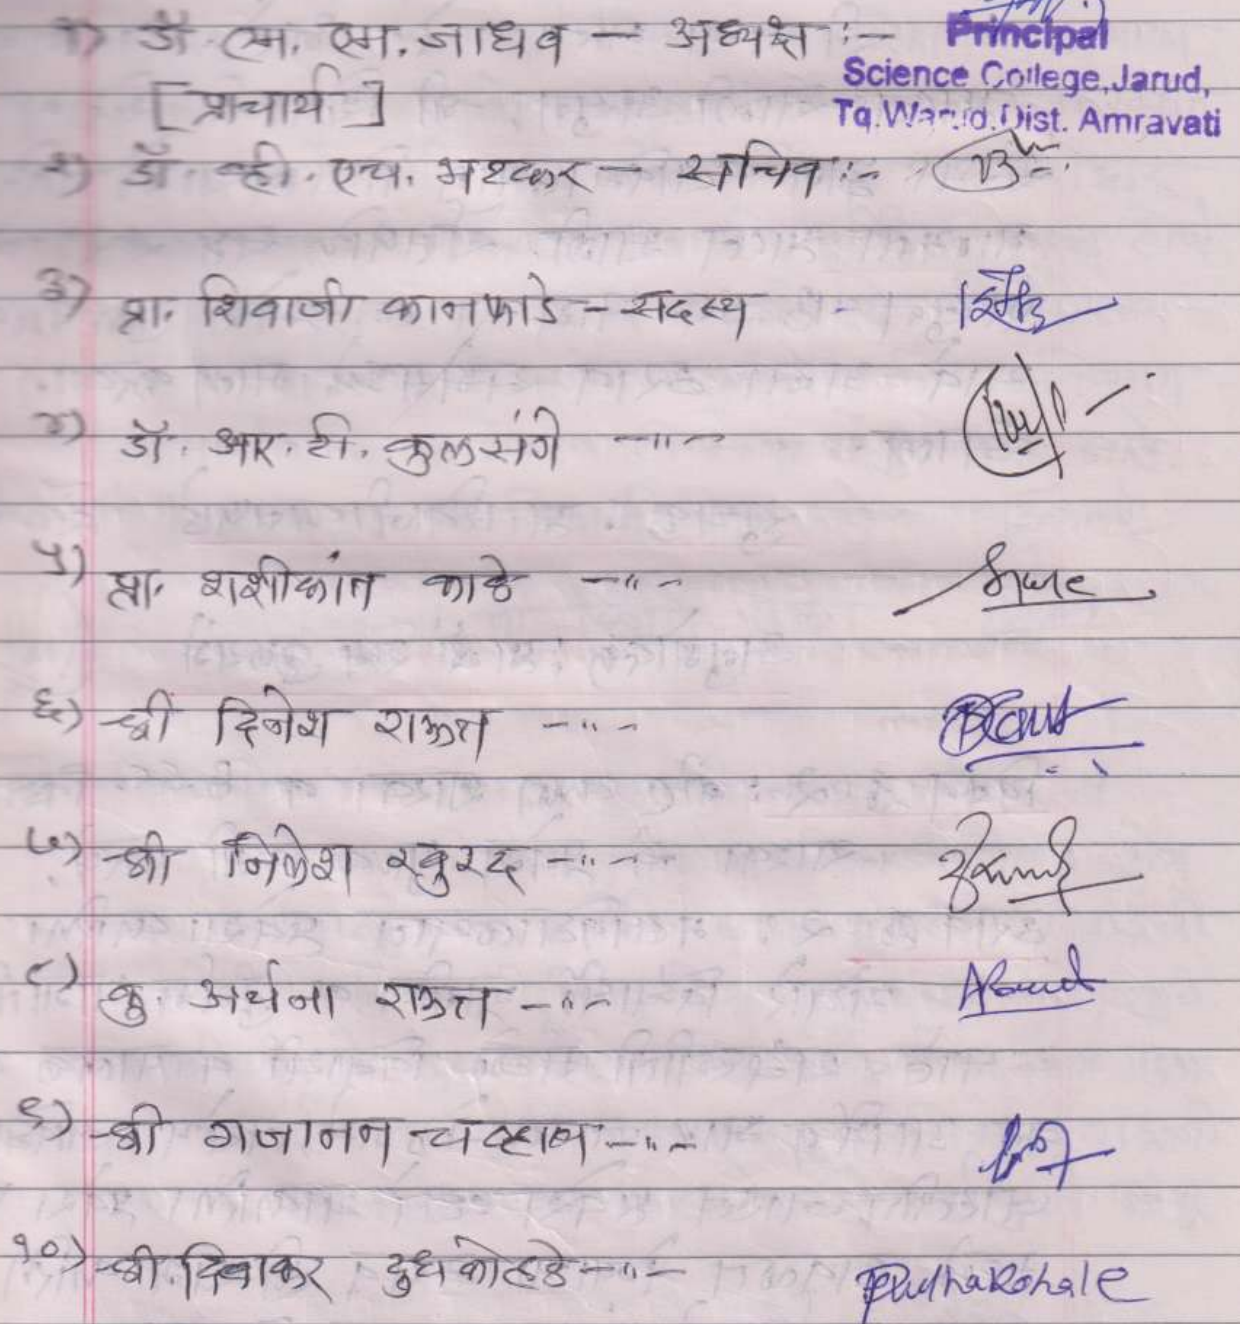 १) डॉ. एम. एम. जाधव – अध्यक्ष :–
Principal
[ प्राचार्य ]
Science College, Jarud,
Tq. Warud, Dist. Amravati
२) डॉ. व्ही. एच. भटकर – सचिव :–
३) प्रा. शिवाजी कानफाडे – सदस्य
४) डॉ. आर. टी. कुलसंगे –〃–
५) प्रा. शशीकांत काळे –〃–
६) श्री दिनेश राऊत –〃–
७) श्री निलेश खुरद –〃–
८) कु. अर्चना राऊत –〃–
९) श्री गजानन चव्हाण –〃–
१०) श्री. दिवाकर दुधकोहळे –〃–